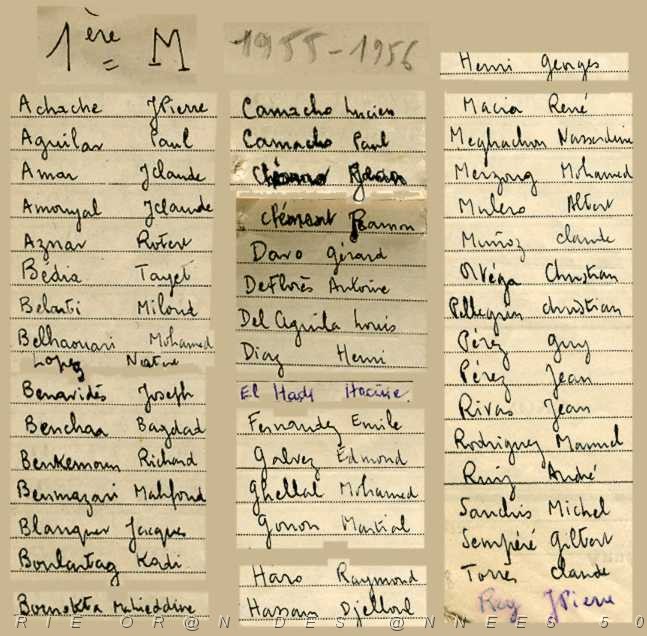 1ère M
1955-1956
Achache JPierre
Aguilar Paul
Amar JClaude
Amouyal JClaude
Aznar Robert
Bédia Tayet
Belarbi Miloud
Belhaouari Mohamed
Lopez
Benavidès Joseph
Benchaa Bagdad
Benkemoun Richard
Benmazari Mahfoud
Blanquer Jacques
Boulantag Kadi
Bornokta Mahieddine
Camacho Lucien
Camacho Paul
Clément Ramon
Davo Gérard
Deflorès Antoine
Del Aguila Louis
Diaz Henri
El Hadj Hocine.
Fernandez Emile
Galvez Édmond
Ghellal Mohamed
Gonon Martial
Haro Raymond
Hassaus Djelloul
Henri Georges
Macia René
Meghachou Nassredine
Merzoug Mohamed
Mulero Albert
Muñoz Claude
Ortéga Christian
Pellegrin christian
Pérez Guy
Pérez Jean
Rivas Jean
Rodriguez Manuel
Ruiz André
Sanchis Michel
Sempéré Gilbert
Torres claude
Rey JPierre
RIE OR@N DES @NNEES 50